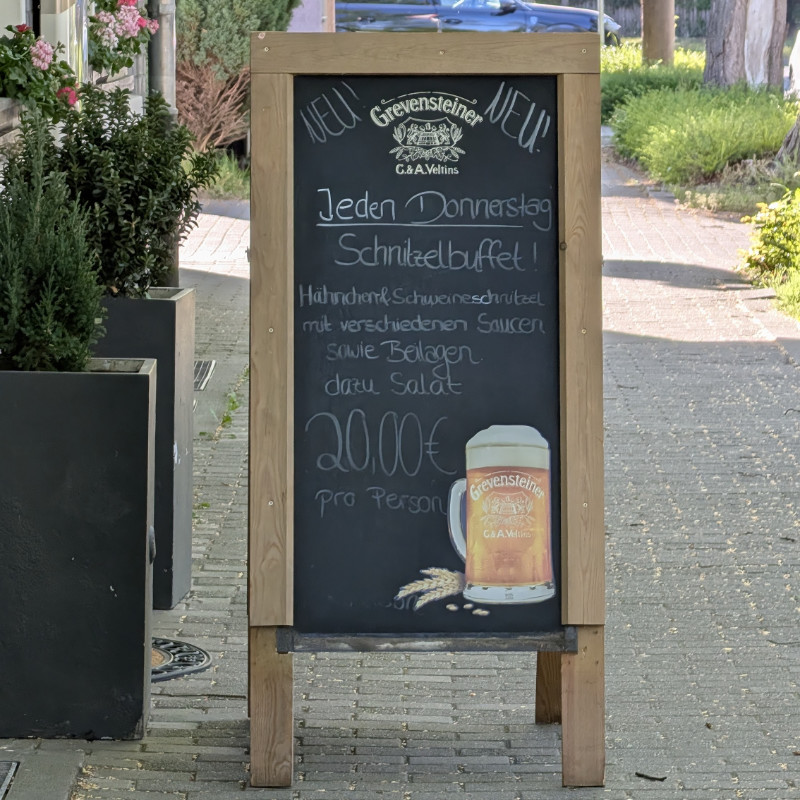 NEU! Grevensteiner NEU!
G.&A.Veltins
Jeden Donnerstag
Schnitzelbuffet!
Hähnchen & Schweineschnitzel
mit verschiedenen Saucen
sowie Beilagen.
dazu Salat
20,00€
pro Person
Grevensteiner
G.&A.Veltins